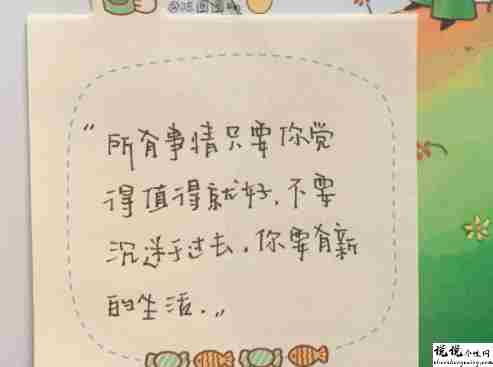 "所有事情只要你觉
得值得就好，不要
沉迷于过去，你要有新
的生活．"
说说个性网